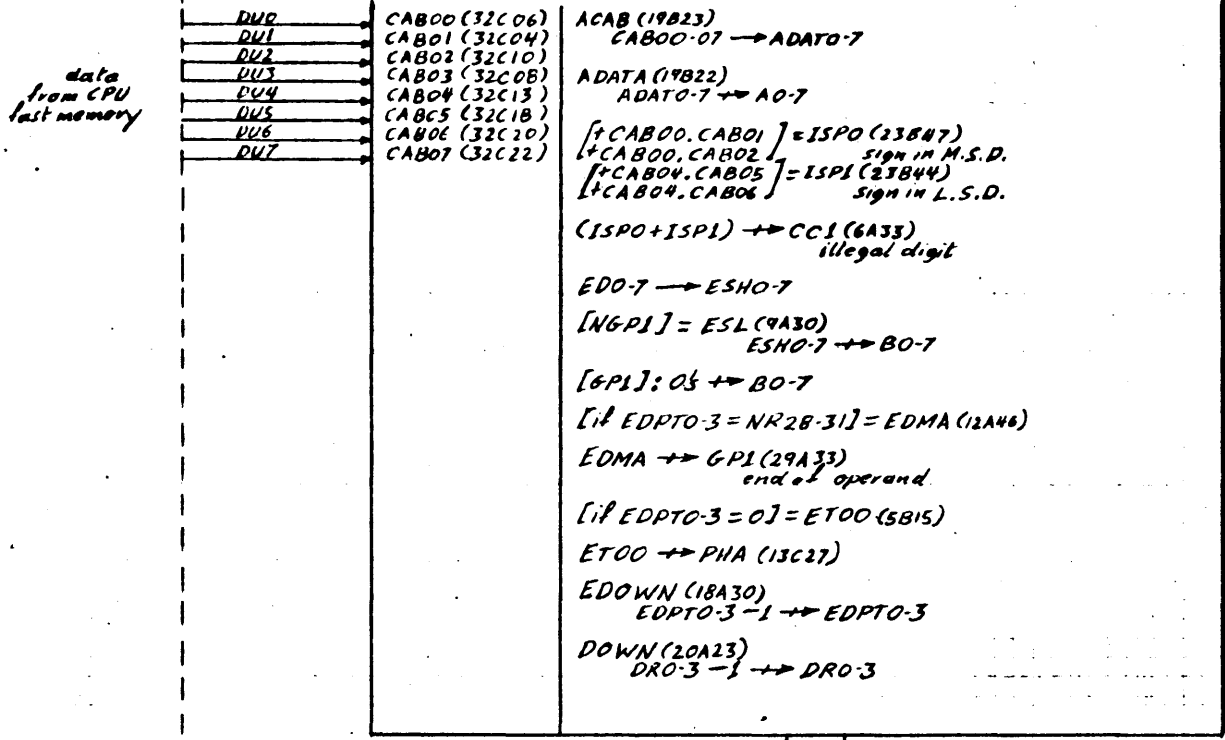 data
from CPU
fast memory
DU0
DU1
DU2
DU3
DU4
DU5
DU6
DU7
CAB00 (32C06)
CAB01 (32C04)
CAB02 (32C10)
CAB03 (32C08)
CAB04 (32C13)
CAB05 (32C18)
CAB06 (32C20)
CAB07 (32C22)
ACAB (19B23)
CAB00-07 → ADAT0-7
ADATA (19B22)
ADAT0-7 ⇸ A0-7
[+CAB00.CAB01] = ISP0 (23B47)
[+CAB00.CAB02] sign in M.S.D.
[+CAB04.CAB05] = ISP1 (23B44)
[+CAB04.CAB06] sign in L.S.D.
(ISP0+ISP1) ⇸ CC1 (6A33)
illegal digit
ED0-7 → ESH0-7
[NGP1] = ESL (9A30)
ESH0-7 ⇸ B0-7
[GP1]: 0's ⇸ B0-7
[if EDPT0-3 = NR28-31] = EDMA (12A46)
EDMA ⇸ GP1 (29A33)
end of operand
[if EDPT0-3 = 0] = ET00 (5B15)
ET00 ⇸ PHA (13C27)
EDOWN (18A30)
EDPT0-3 -1 ⇸ EDPT0-3
DOWN (20A23)
DR0-3 -1 ⇸ DR0-3